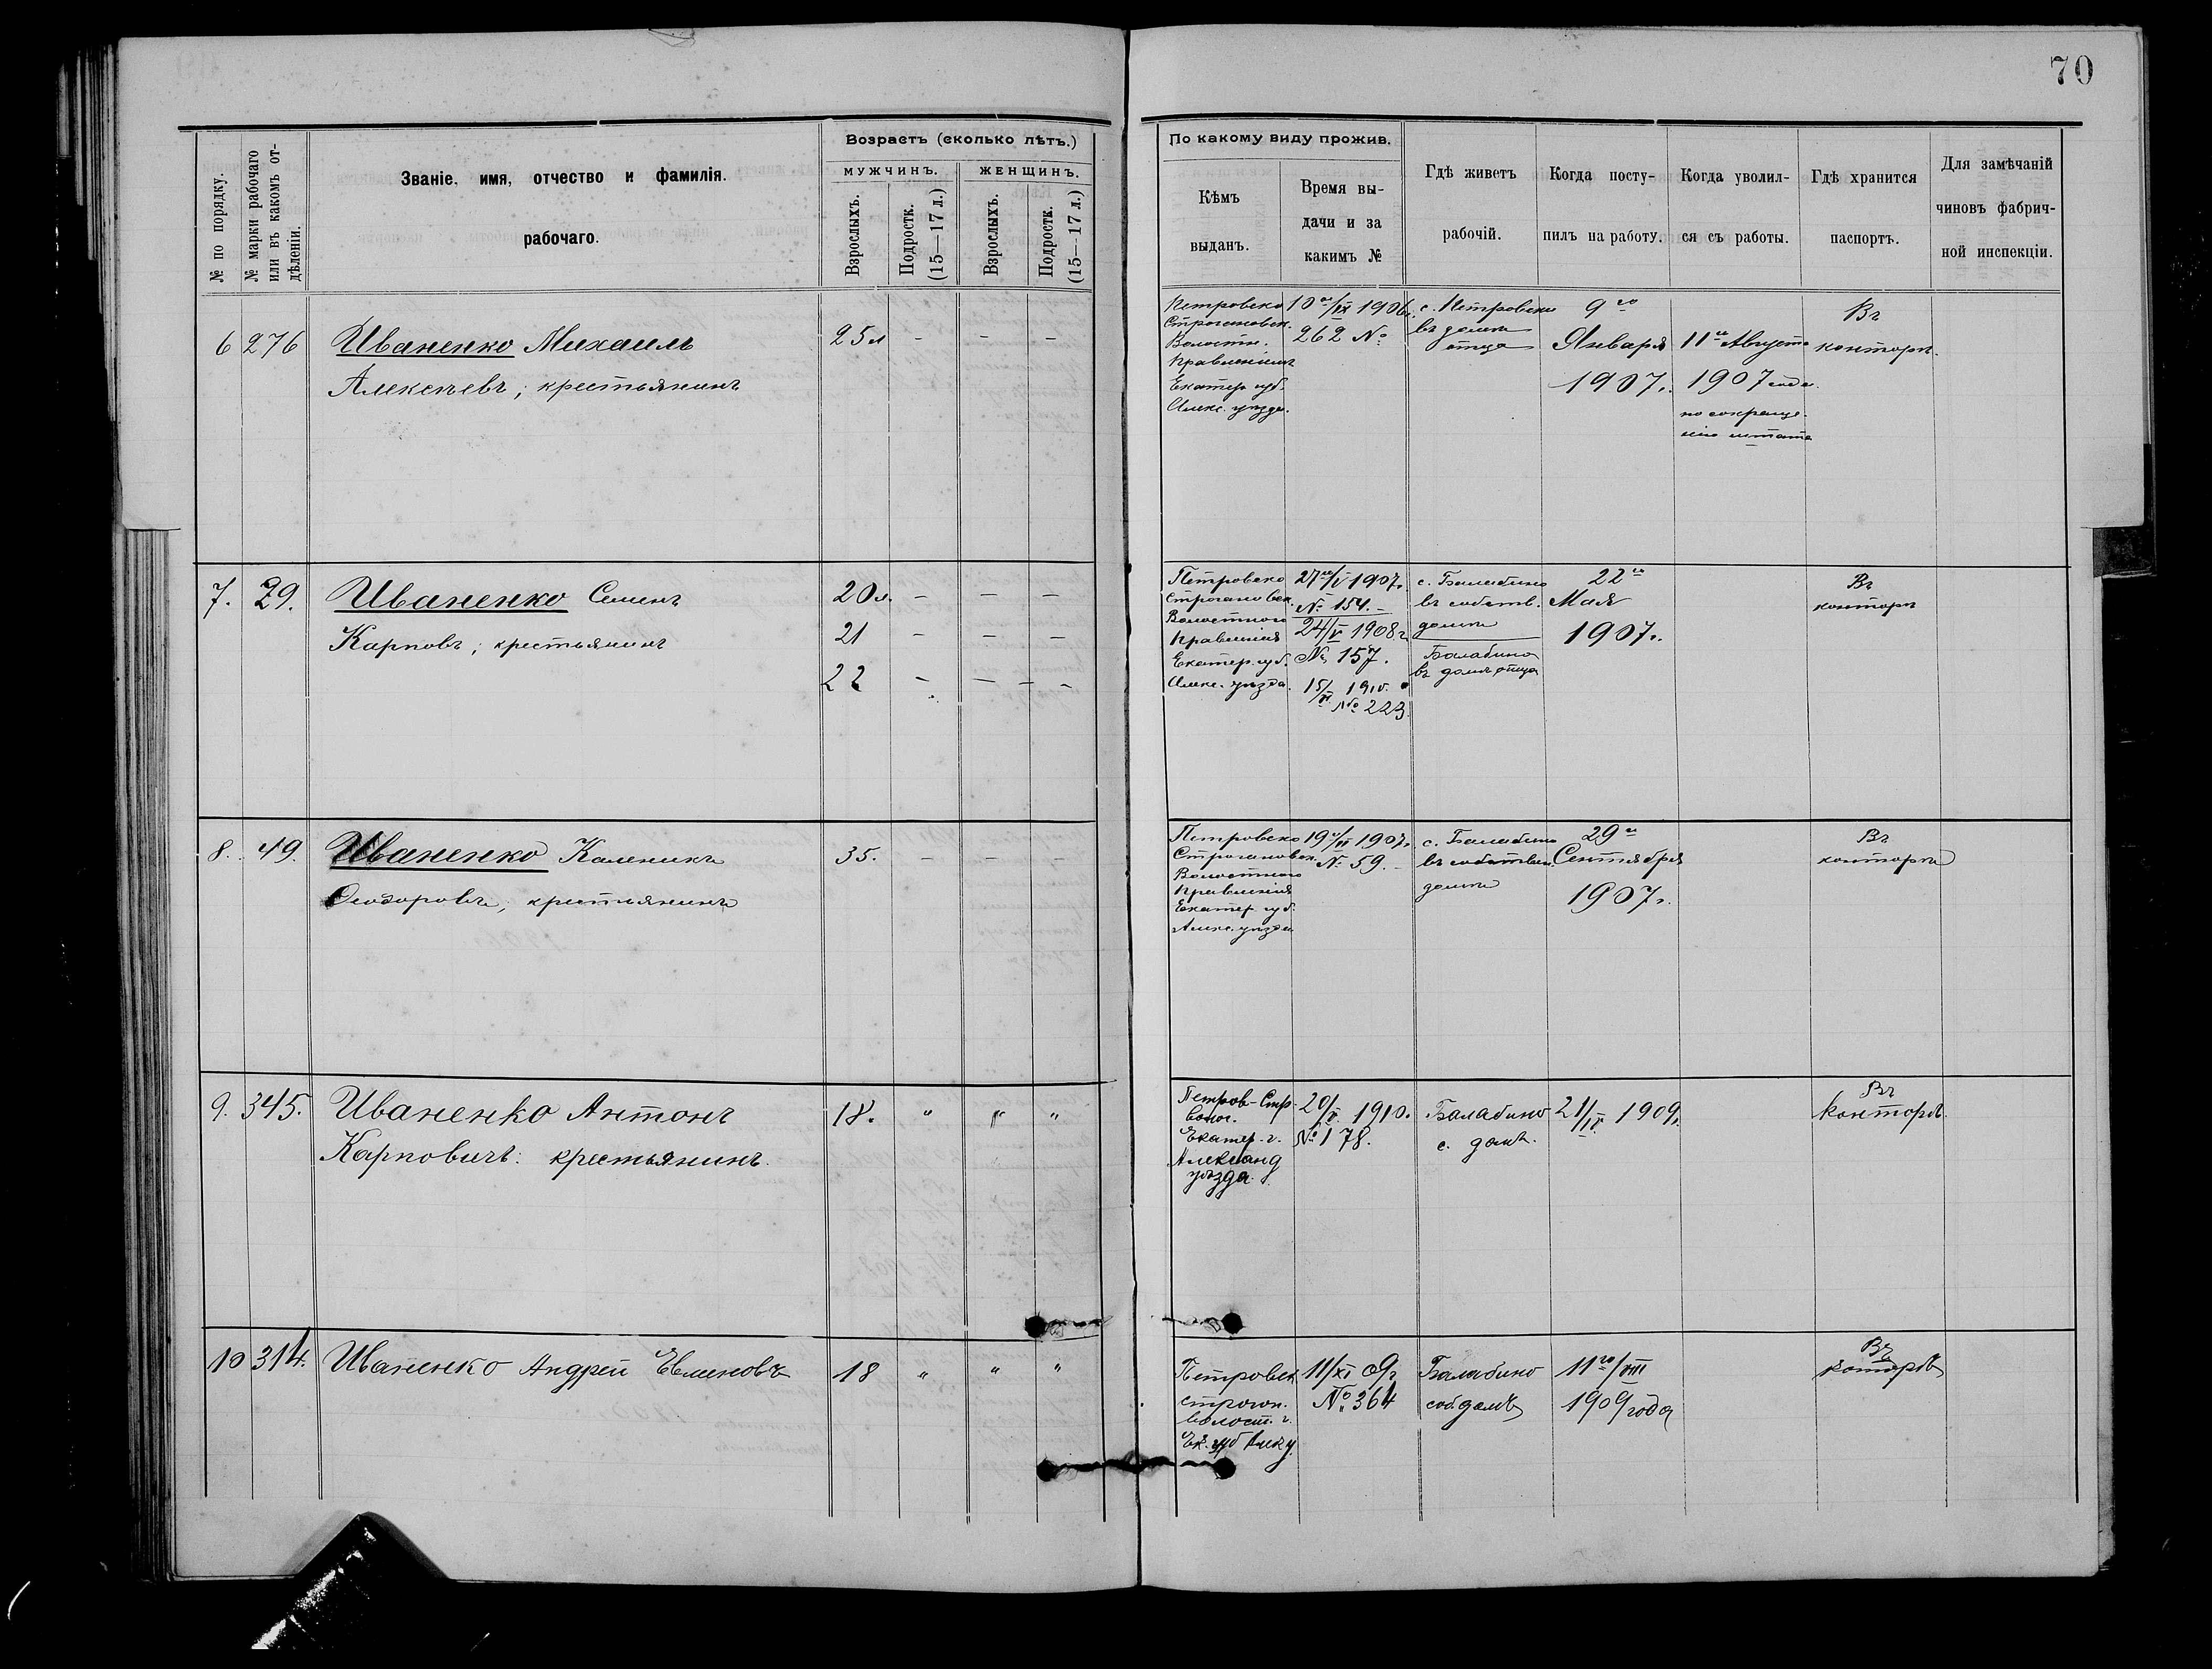 70
№ по порядку.
№ марки рабочаго
или въ какомъ от-
дѣленіи.
Званіе, имя, отчество и фамилія.
рабочаго.
Возрастъ (сколько лѣтъ.)
мужчинъ.
женщинъ.
Взрослыхъ.
Подростк.
(15—17 л.)
Взрослыхъ.
Подростк.
(15—17 л.)
По какому виду прожив.
Кѣмъ
выданъ.
Время вы-
дачи и за
какимъ №
Гдѣ живетъ
рабочій.
Когда посту-
пилъ на работу.
Когда уволил-
ся съ работы.
Гдѣ хранится
паспортъ.
Для замѣчаній
чиновъ фабрич-
ной инспекціи.
6 276 Иваненко Михаилъ
Алексѣевъ; крестьянинъ
25 л - - -
Петровско
Строгановск.
Волостн.
Правленіемъ
Екатер. губ.
Алекс. уѣзда.
10го/IX 1906г.
262 №
с. Петровско
въ домѣ
отца
9го
Января
1907г.
11го Августа
1907 года.
по сокраще-
нію штата
Въ
конторѣ.
7. 29. Иваненко Семенъ
Карповъ; крестьянинъ
20 л. - - -
21 - - -
22 - - - -
Петровско
Строгановск.
Волостного
Правленія
Екатер. губ.
Алекс. уѣзда.
27го/V 1907г.
№ 154. -
24/V 1908 г.
№ 157.
15/VI 1910.
№ 223.
с. Балабино
въ собств.
домѣ
Балабино
въ домѣ отца
22го
Мая
1907г.
Въ
конторѣ
8. 49. Иваненко Каленикъ
Ѳеодоровъ; крестьянинъ
35. - - -
Петровско
Строгановск.
Волостного
Правленія
Екатер. губ.
Алекс. уѣзда
1907г.
№ 59. -
с. Балабино
въ собствен.
домѣ
29го
Сентября
1907г.
Въ
конторѣ
9. 345. Иваненко Антонъ
Карповичъ: крестьянинъ.
18. " " "
Петров-Стр-
волос.
Екатер. г.
Александ
уѣзда.
20/V. 1910.
№ 178.
Балабино
с. домъ.
21/IV. 1909г.
Въ
конторѣ.
10 314. Иваненко Андрей Евменовъ
18 " " "
Петровск
строган.
волост. г.
Ек. губ Алек у.
11/XI 09г
№ 364
Балабино
соб. домѣ
11го/VIII
1909 года
Въ
конторѣ